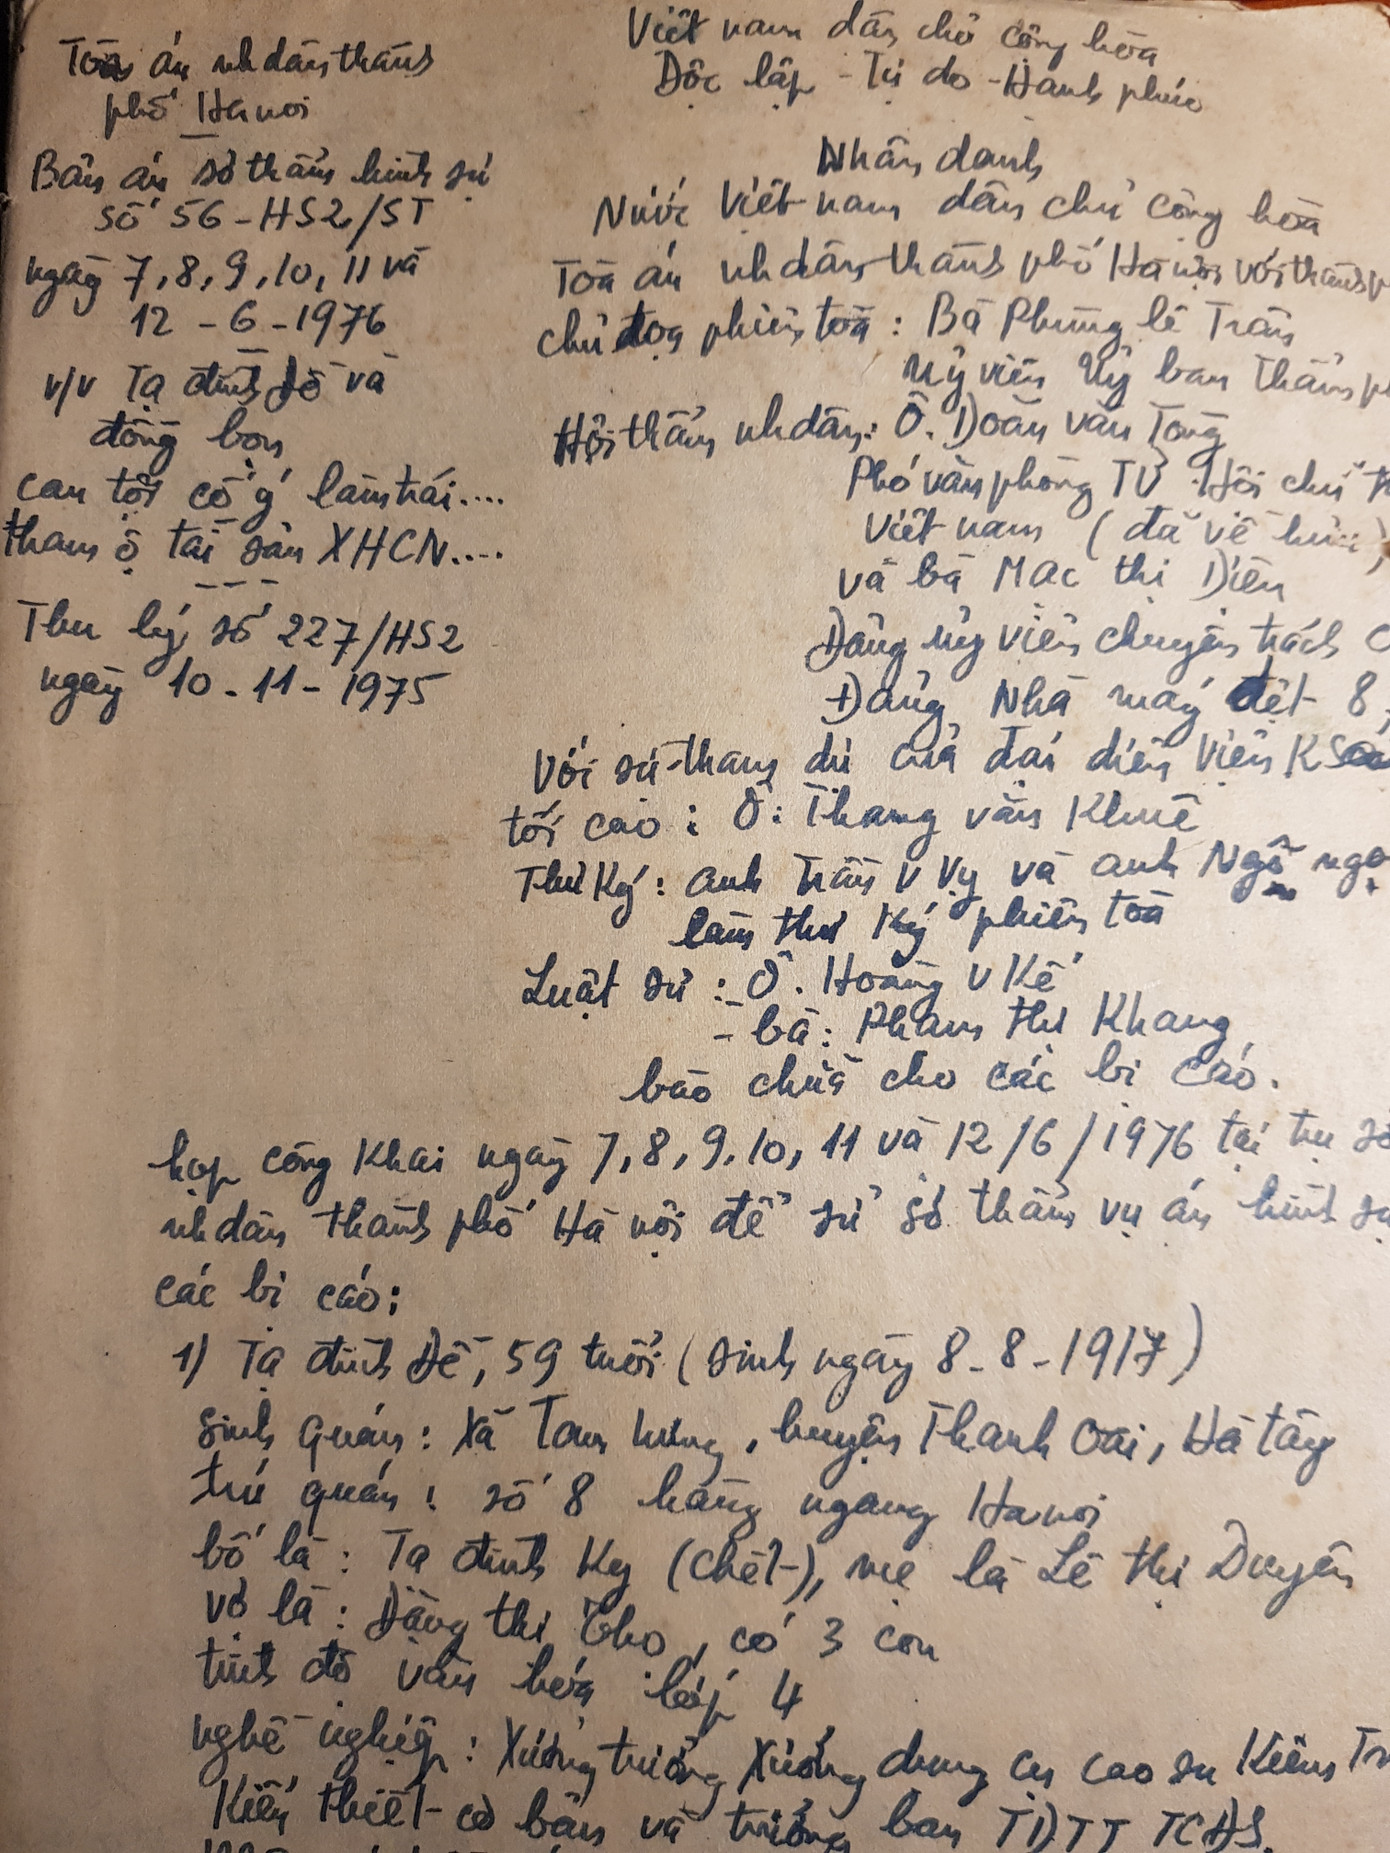 Toà án nhdân thành
phố Hà nội
Bản án sơ thẩm hình sự
số 56 - HS2/ST
ngày 7, 8, 9, 10, 11 và
12 - 6 - 1976
v/v Tạ đình Đề và
đồng bọn
can tội cố ý làm trái....
tham ô tài sản XHCN....
Thụ lý số 227/HS2
ngày 10 - 11 - 1975
Việt nam dân chủ cộng hòa
Độc lập - Tự do - Hạnh phúc
Nhân danh
Nước Việt nam dân chủ cộng hoà
Toà án nhdân thành phố Hà nội với
chủ toạ phiên toà : Bà Phùng lê Trân
Uỷ viên Uỷ ban thẩm
Hội thẩm nhdân: Ô. Đoàn văn Tòng
Phó văn phòng TƯ Hội chữ
Việt nam ( đã về hưu )
và bà Mạc thị Diên
Đảng uỷ viên chuyên trách
Đảng Nhà máy dệt 8
Với sự tham dự của đại diện Viện KS
tối cao : Ô: Thang văn Khuê
Thư Ký : anh Trần V Vỵ và anh Ngô
làm thư ký phiên toà
Luật sư : - Ô. Hoàng V Kế
- bà : Phạm thị Khang
bào chữa cho các bị cáo.
họp công khai ngày 7, 8, 9, 10, 11 và 12/6/1976 tại trụ sở
nhdân thành phố Hà nội để xử sơ thẩm vụ án hình sự
các bị cáo :
1) Tạ đình Đề, 59 tuổi ( sinh ngày 8 - 8 - 1917 )
sinh quán : Xã Tam hưng, huyện Thanh Oai, Hà tây
trú quán : số 8 hàng ngang Hà nội
bố là : Tạ đình Ky (chết), mẹ là Lê thị Duyên
vợ là : Đặng thị Thọ, có 3 con
trình độ văn hóa lớp 4
nghề nghiệp : Xưởng trưởng Xưởng dụng cụ cao su Kiêm
Kiến thiết cơ bản và trưởng ban TDTT TCĐS.